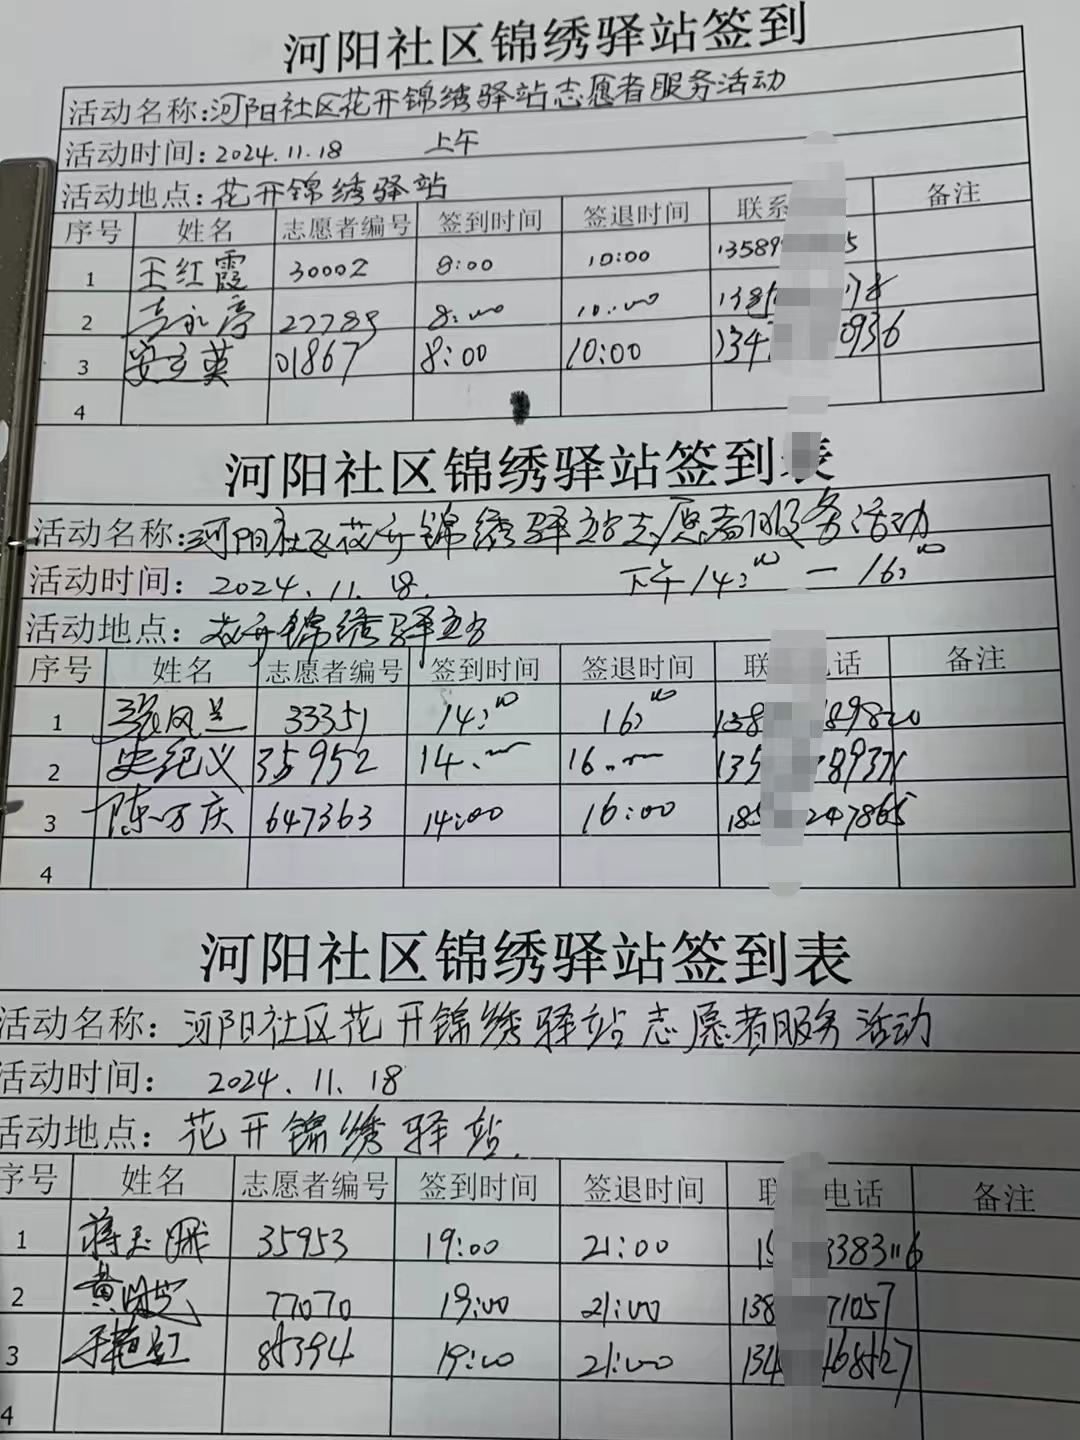 河阳社区锦绣驿站签到
活动名称:河阳社区花开锦绣驿站志愿者服务活动
活动时间:2024.11.18 上午
活动地点:花开锦绣驿站
序号 姓名 志愿者编号 签到时间 签退时间 联系 备注
1 王红霞 30002 8:00 10:00 13589 5
2 27789 8:00 10:00 138 78
3 安立英 01867 8:00 10:00 134 0936
4
河阳社区锦绣驿站签到表
活动名称:河阳社区花开锦绣驿站志愿者服务活动
活动时间: 2024.11.18. 下午14:00 — 16:00
活动地点: 花开锦绣驿站
序号 姓名 志愿者编号 签到时间 签退时间 联 电话 备注
1 张风兰 33351 14:00 16:00 138 89820
2 史纪义 35952 14:00 16:00 135 8937
3 陈万庆 647363 14:00 16:00 185 247865
4
河阳社区锦绣驿站签到表
活动名称: 河阳社区花开锦绣驿站志愿者服务活动
活动时间: 2024.11.18
活动地点: 花开锦绣驿站.
序号 姓名 志愿者编号 签到时间 签退时间 联 电话 备注
1 蒋玉娥 35953 19:00 21:00 15 3383116
2 黄 77070 19:00 21:00 138 71057
3 于艳红 85394 19:00 21:00 134 68527
4